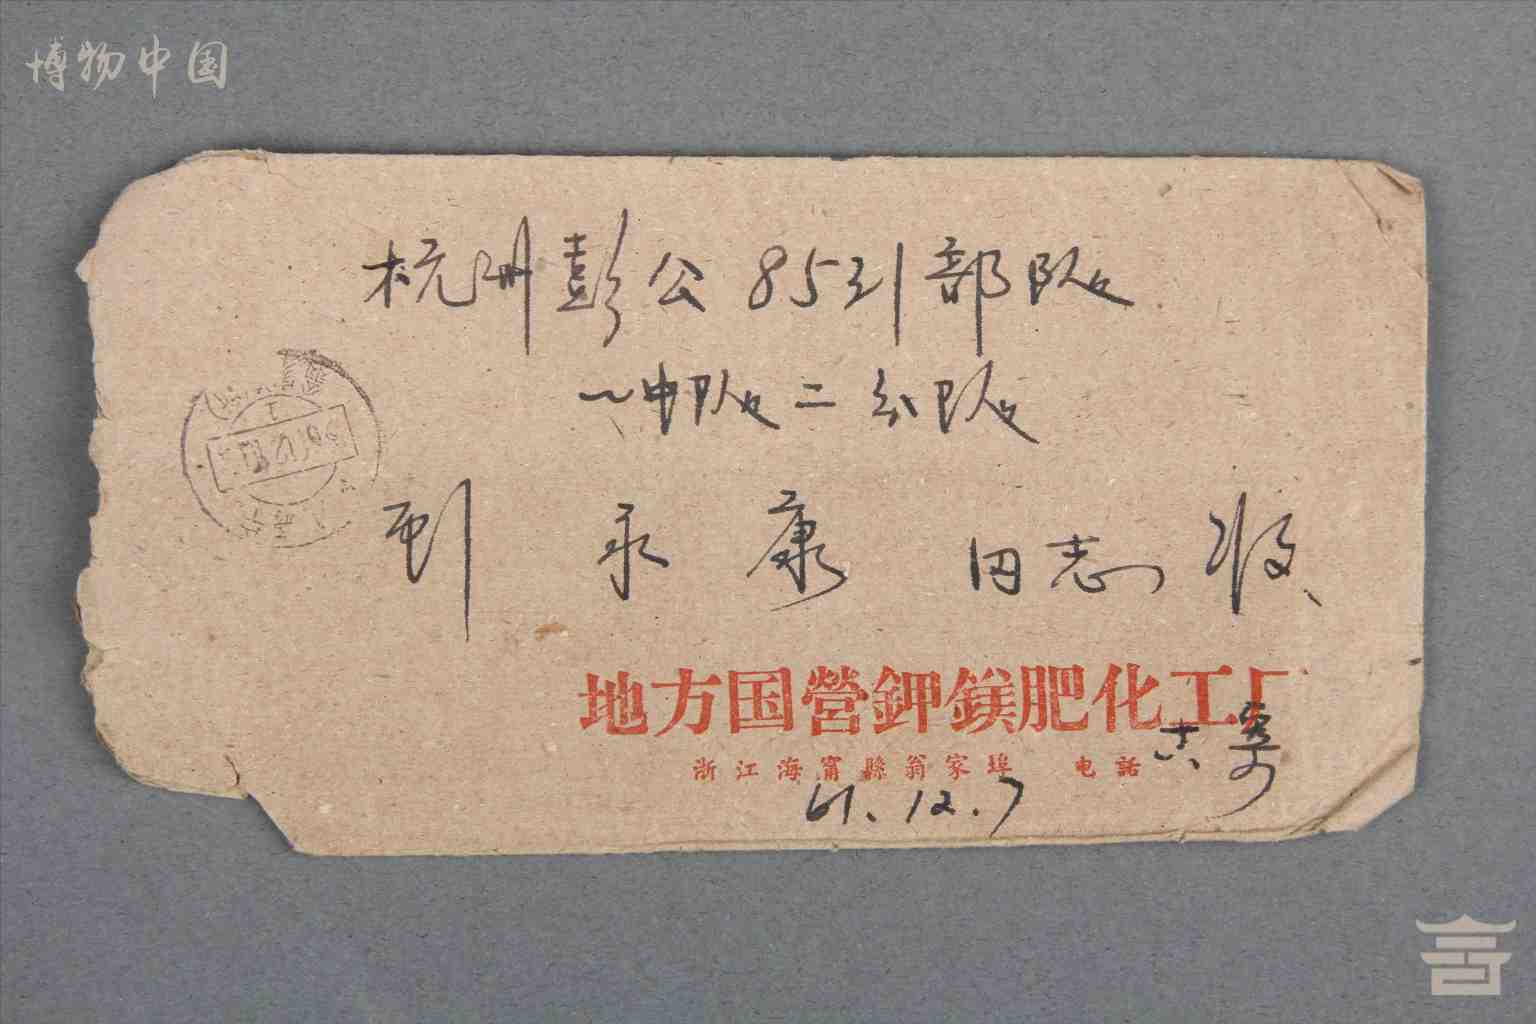 博物中国
杭州彭公8531部队
一中队二分队
刘永康 同志收
地方国营鉀鎂肥化工厂
浙江海甯縣翁家埠 电話
寄
61.12.7